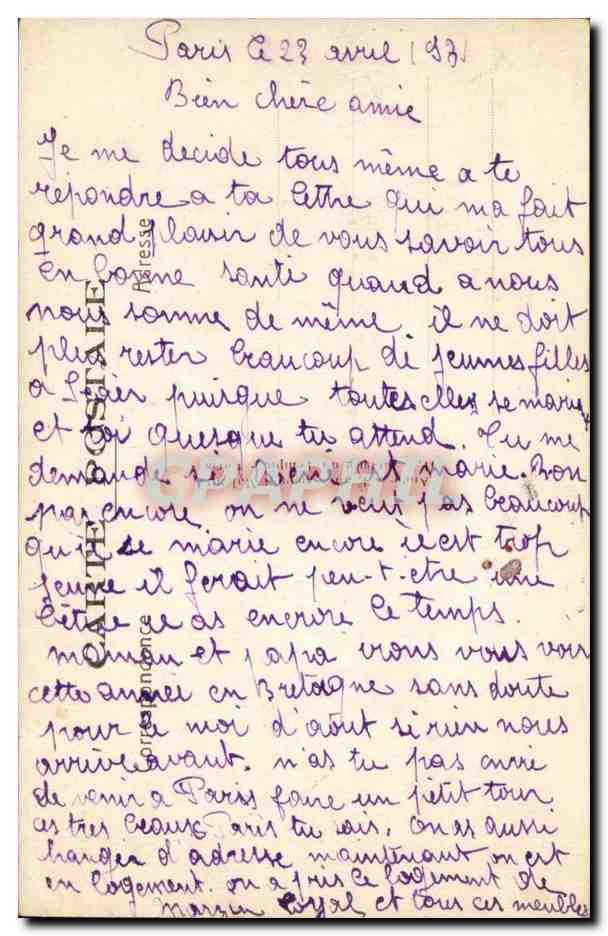 Paris le 23 avril 193
Bien chère amie
Je me decide tous même a te
repondre a ta lettre qui ma fait
grand plaisir de vous savoir tous
en bonne santé quand a nous
nous somme de même il ne doit
plus rester beaucoup de jeunes filles
a puisque toutes elles se marie
et toi quesque tu attend. Tu me
demande si est marie. Bon
pas encore on ne veut pas beaucoup
qu'il se marie encore il est trop
jeune il ferait peu-t-etre une
bêtise il as encore le temps.
maman et papa irons vous voir
cette année en Bretagne sans doute
pour le moi d'août si rien nous
arrive avant. n'as tu pas envie
de venir a Paris faire un petit tour
ces tres beaux Paris tu sais. on as aussi
changer d'adresse maintenant on est
en logement. on a pris le logement de
loyal et tous ces meubles
CARTE POSTALE
Correspondance
Adresse
CPAPHIL